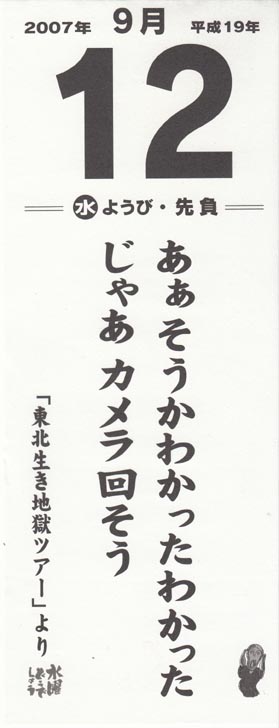 2007年 9月 平成19年
12
水 ようび・先負
あぁそうかわかったわかった
じゃあ カメラ回そう
「東北生き地獄ツアー」より
水曜どうでしょう